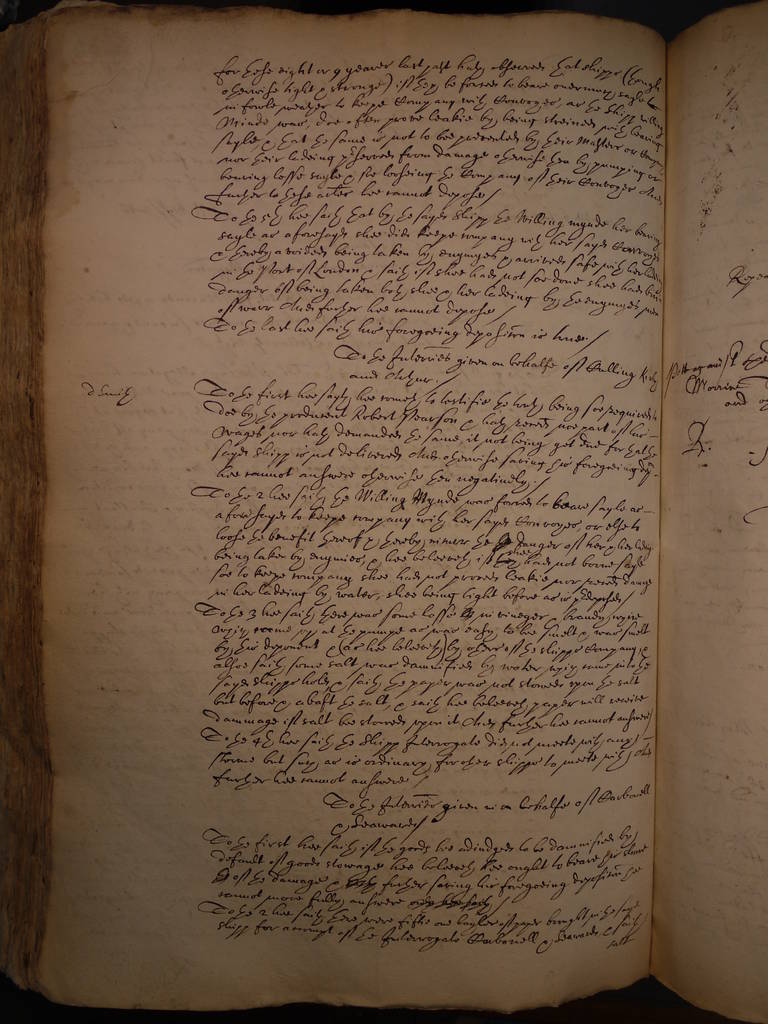 for these eight or 9 yeares last past hath observed that shipps (though
otherwise tight & stronge) if they be forced to beare overmuch sayle
in fowle weather to keepe Company with Convoyes, as the shipp Willing
Minde was, doe often prove leakie by being streined with bearing
sayle, & that the same is not to bee prevented by their Masters or Company
nor their ladeing preserved from damage otherwise then by pumping or
bearing lesse sayle & soe looseing the Company of their Convoyes And
further to these articles hee cannot depose/
To the 5th hee saith that by the sayd shipp the Willing mynde her bearing
sayle as aforesayd shee did keepe company with her sayd Convoyes
& thereby avoided being taken by enymyes & arrived safe with her ladeing
in the Port of London & saith if shee had not soe done shee had beene in
danger of being taken both shee & her ladeing by the enymyes men
of warr And further hee cannot depose/
To the last hee saith his foregoeing deposition is true./
To the Interries given on behalfe of
and Arthur./
To the first hee sayth hee comes to testifie the truth being soe required to
doe by the producent Robert Pearson & hath received noe part of his
wages nor hath demanded the same, it not being yet due for that the
sayd shipp is not delivered And otherwise saving his foregoeing
hee cannot answere otherwise then negatively./
To the 2 hee saith the Willing Mynde was forced to beare sayle as
aforesayd to keepe company with her sayd Convoyes, or else to
loose the benefit thereof & thereby incurr the danger of her & her ladeing
being taken by enymies, & hee beleeveth if shee had not borne sayle
soe to keepe company shee had not proved leakie nor received damage
in her ladeing by water, shee being tight before as is predeposed/
To the 3 hee saith there was some losse in vineger & brandy
came up at the pumpe as was easy to bee smelt & was smelt
by this deponent & (as hee beleeveth) by others of the shipps company, &
alsoe saith some salt was damnified by water which came into the
sayd shipps hold, & saith the paper was not stowed upon the salt
but before & abaft the salt, & saith hee beleeveth paper will receive
dammage if salt be stowed upon it And further hee cannot answere/
To the 4th hee saith the Shipp Interrogate did not meete with any
storme but such as is ordinary for other shipps to meete with, And
further hee cannot answere/
To the Interries given in on behalfe of Barbonell
& Seawards/
To the first hee saith if the goods hee adiudged to be damnified by
default of good stowage hee beleeveth hee ought to beare
of the damage & further saving his foregoeing deposition he
cannot more fully answere
To the 2 hee saith there were fiftie one bayles of paper brought in the sayd
shipp for accompt of the Interrogate Barbonell & Seawards, & saith
salt